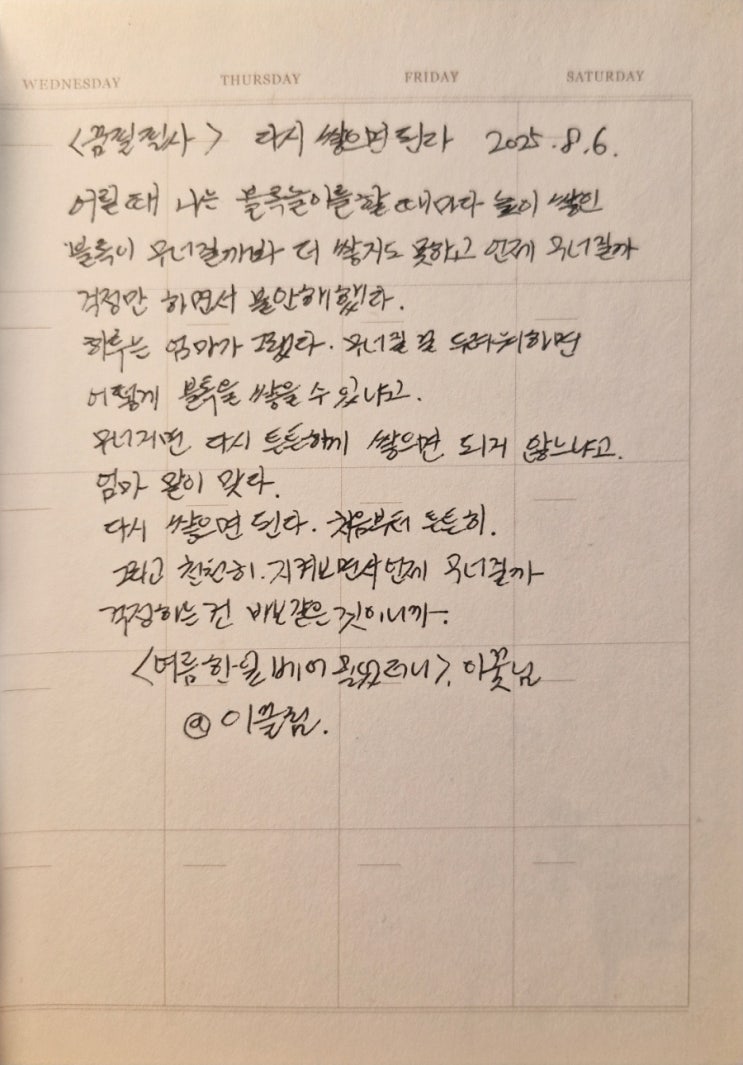 WEDNESDAY THURSDAY FRIDAY SATURDAY
<꿈필필사> 다시 쌓으면 된다 2025.8.6.
어릴 때 나는 블록놀이를 할 때마다 높이 쌓인
블록이 무너질까봐 더 쌓지도 못하고 언제 무너질까
걱정만 하면서 불안해했다.
하루는 엄마가 그랬다. 무너질 걸 두려워하면
어떻게 블록을 쌓을 수 있냐고.
무너지면 다시 튼튼하게 쌓으면 되지 않느냐고.
엄마 말이 맞다.
다시 쌓으면 된다. 처음부터 튼튼히.
그리고 천천히. 지켜보면서 언제 무너질까
걱정하는 건 바보같은 것이니까.
<여름을 한 입 베어 물었더니>, 이꽃님
@ 이끌림.